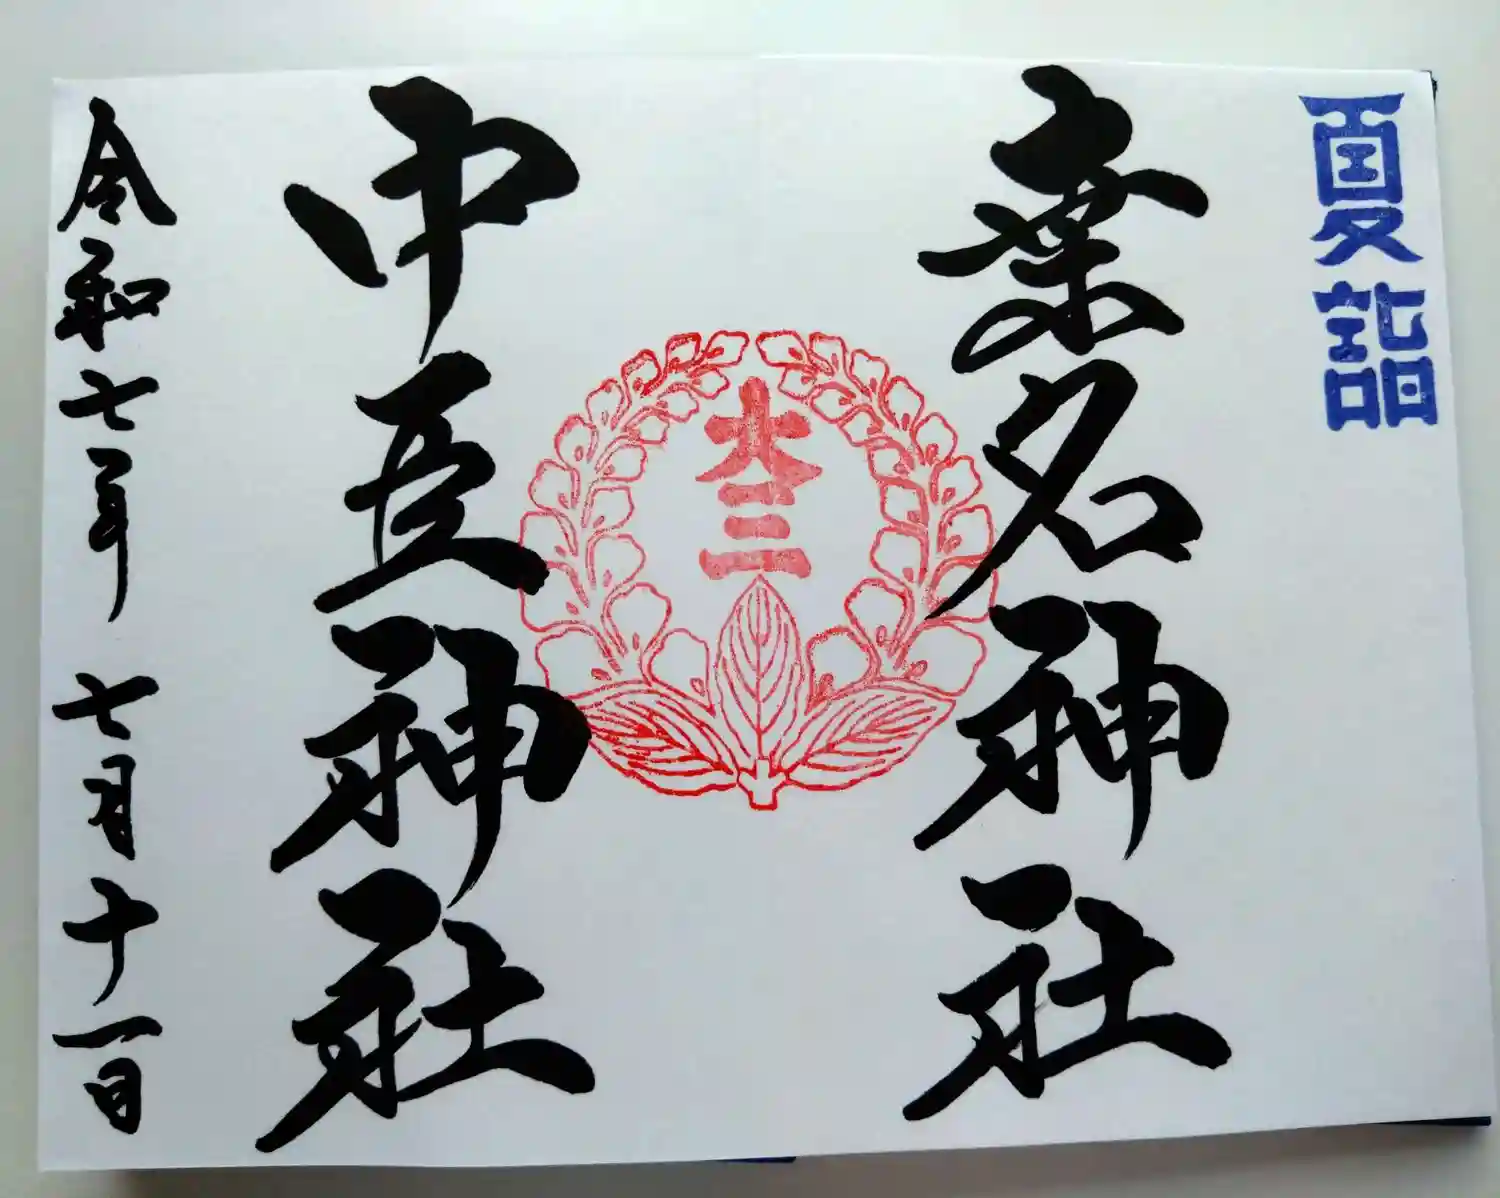 夏詣
桑名神社
本三
中臣神社
令和七年 七月十一日